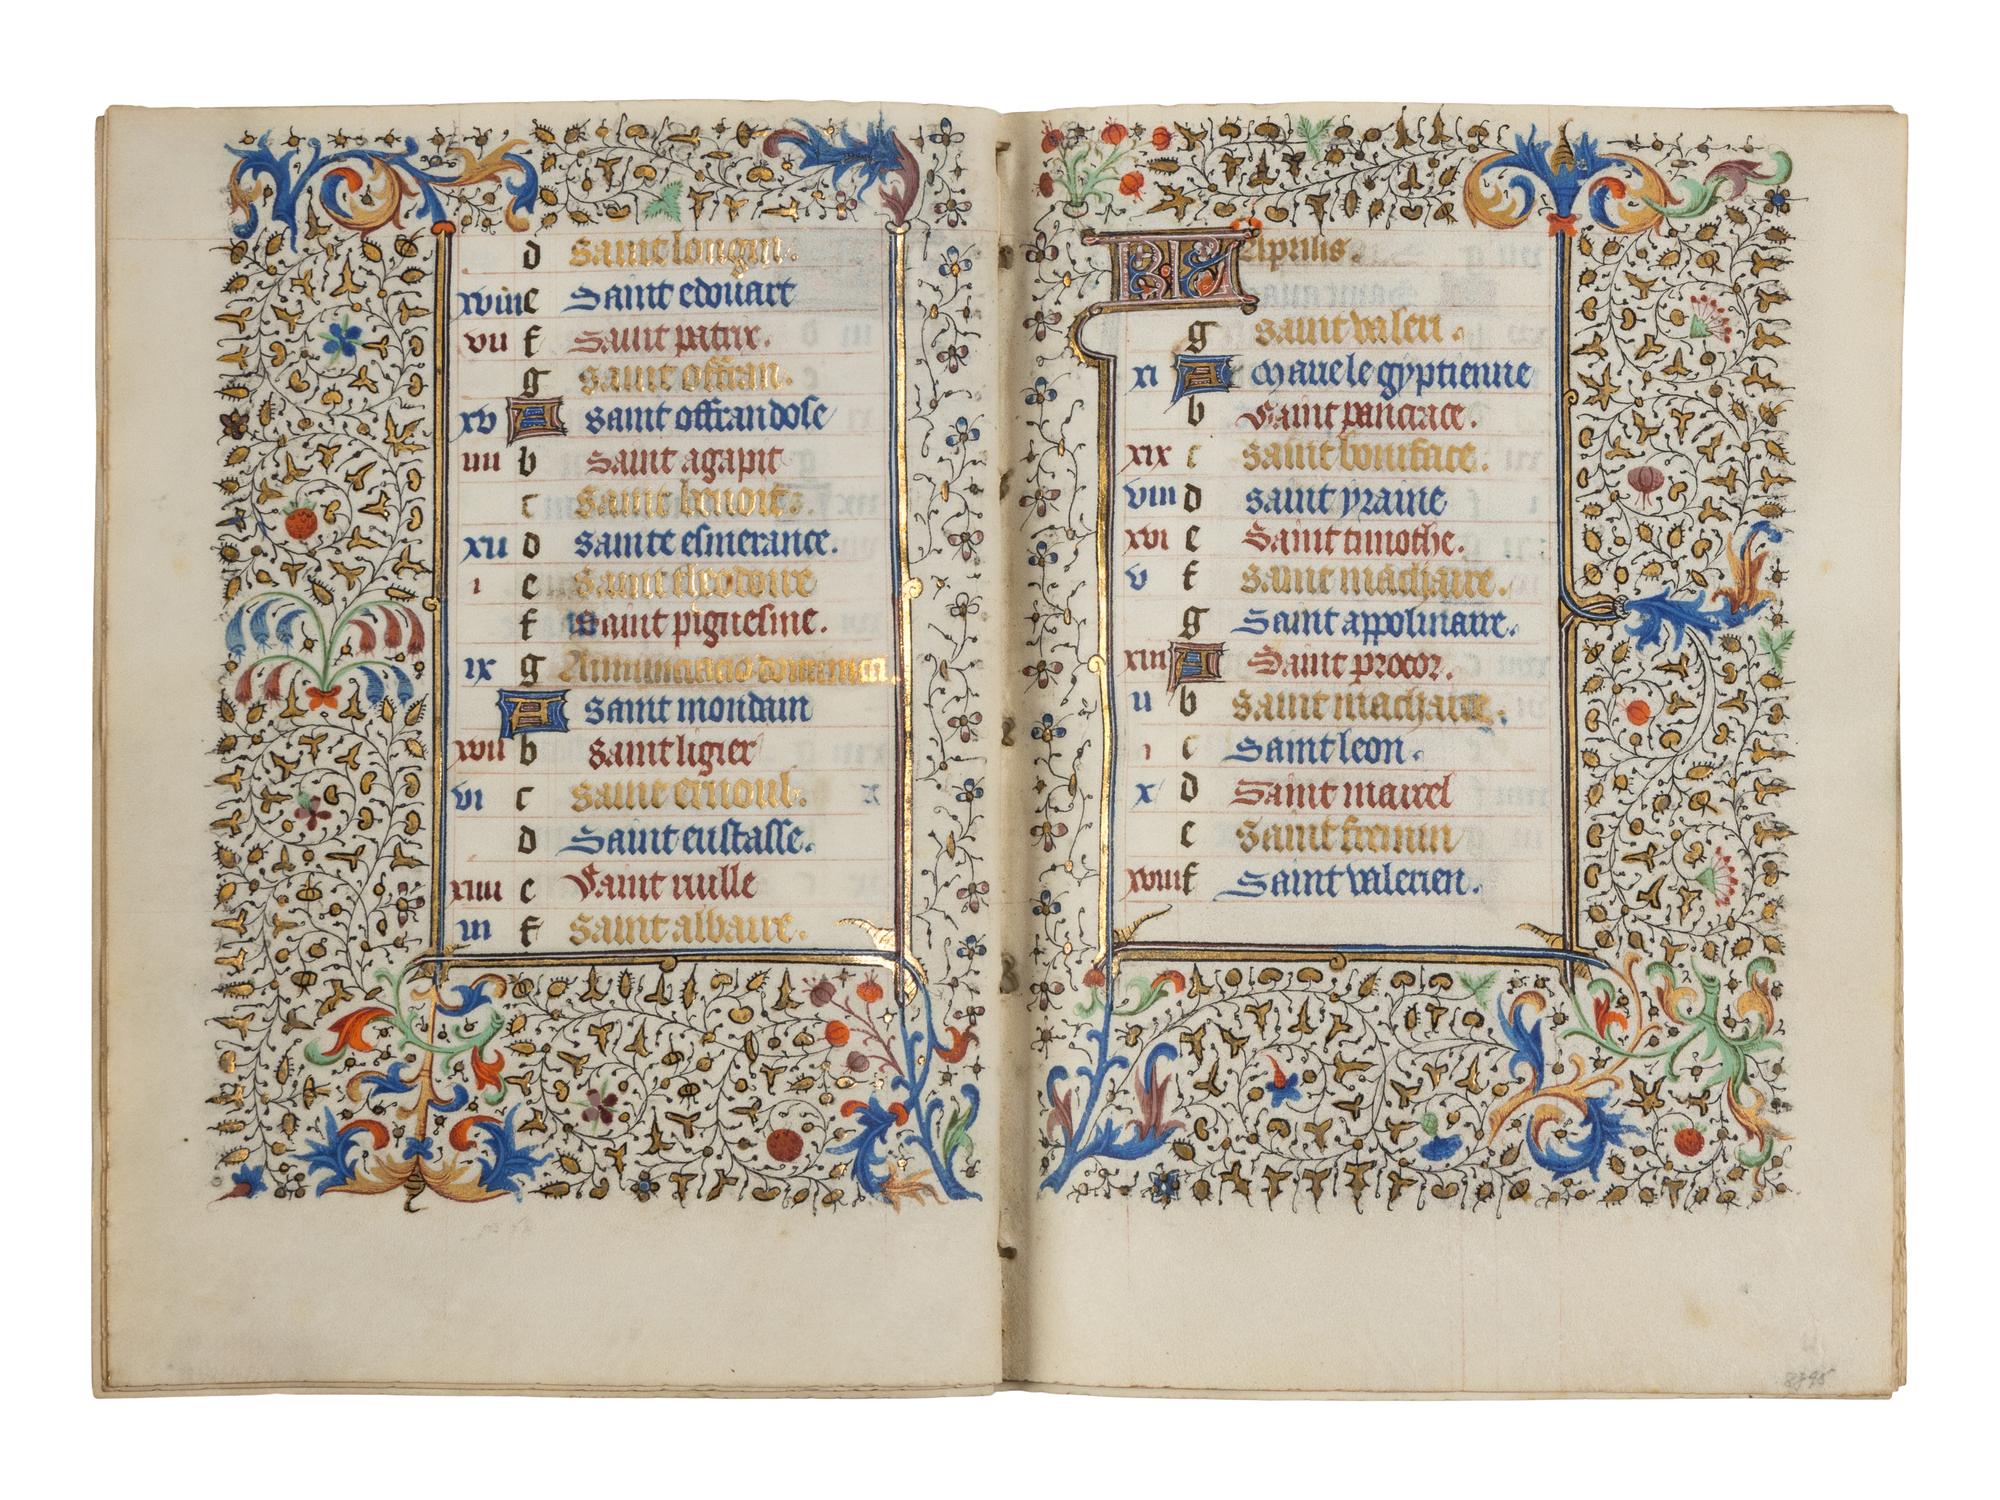 d saint longin.
xviii e Saint edouart
vii f Saint patrix.
g saint offran.
xv A saint offrandose
iiii b Saint agapit
c saint benoit.
xii d sainte esmerance.
i e Saint theodoire
f Saint pignesme.
ix g Annunciacio dominica.
A saint mondain
xvii b saint ligier
vi c saint ernoul.
d Saint eustasse.
xiiii e Saint rulle
iii f saint albaire.
KL Aprilis.
g saint valeri.
xi A Marie le gyptienne
b Saint pancrace.
xix c saint boniface.
viii d saint yraine
xvi e Saint timothe.
v f saint machaire.
g Saint appolinaire.
xiii A Saint procor.
ii b saint machaire.
i c Saint leon.
x d Saint marcel
e saint fremin
xviii f Saint valerien.